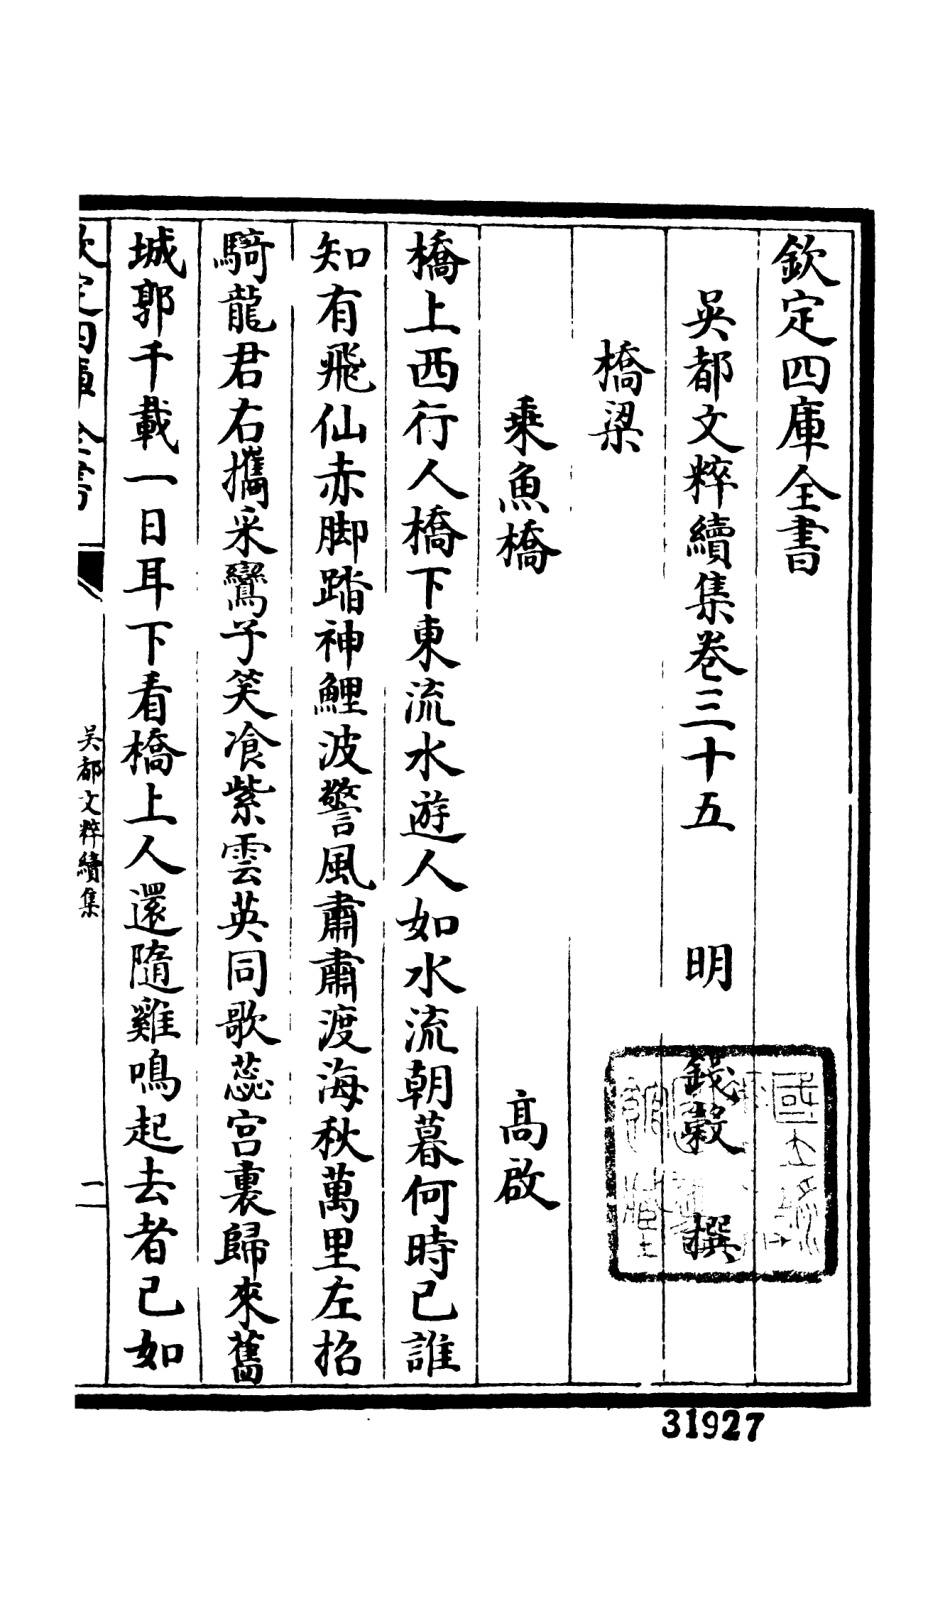 欽定四庫全書
吳都文粹續集卷三十五 明 錢榖 撰
橋梁
乗魚橋 高啟
橋上西行人橋下東流水遊人如水流朝暮何時已誰
知有飛仙赤脚踏神鯉波警風肅肅渡海秋萬里左招
騎龍君右攜采鸞子笑飡紫雲英同歌蕊宫裏歸來舊
城郭千載一日耳下看橋上人還隨雞鳴起去者已如
欽定四庫全書
吳都文粹續集
一
31927